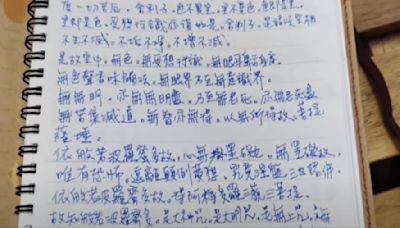 度一切苦厄。舍利子。色不異空。空不異色。色即是空。
空即是色。受想行識亦復如是。舍利子。是諸法空相
不生不滅。不垢不淨。不增不減。
是故空中。無色。無受想行識。無眼耳鼻舌身意。
無色聲香味觸法。無眼界乃至無意識界。
無無明。亦無無明盡。乃至無老死。亦無老死盡
無苦集滅道。無智亦無得。以無所得故。菩提
薩埵。
依般若波羅蜜多故。心無罣礙。無罣礙故。
有恐怖。遠離顛倒夢想。究竟涅槃。三世諸佛
依般若波羅蜜多故。得阿耨多羅三藐三菩提。
故知般若波羅蜜多。是大神咒。是大明咒。是無上咒。